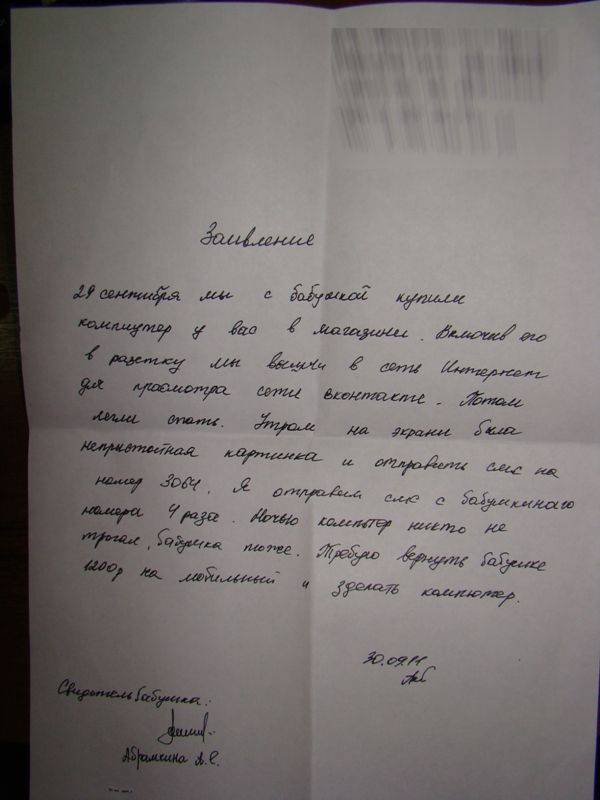 Заивление
29 сентября мы с бабушкой купили
компиутер у вас в магазини. Включив его
в разетку мы вышли в сеть Интернет
для просмотра сети вконтакте. Потом
легли спать. Утром на экрани была
непристойная картинка и отправить смс на
номер 3064. Я отправил смс с бабушкиного
номера 4 раза. Ночью компьтер никто не
трогал, бабушка тоже. Требую вернуть бабушке
1200р на мобильный и зделать компютер.
30.09.11
Свидетель бабушка:
Абрамкина А.Е.